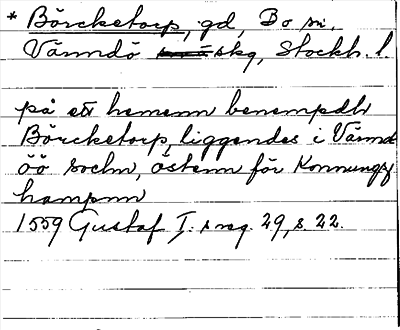 * Börcketorp, gd, Bo sn,
Värmdö skg, Stockh. l.
på ett hemenn benempdh
Börcketorp, liggendes i Värmd
öö sochn, östenn för Konnungz
hampnn
1559 Gustaf I. s reg. 29, s. 22.